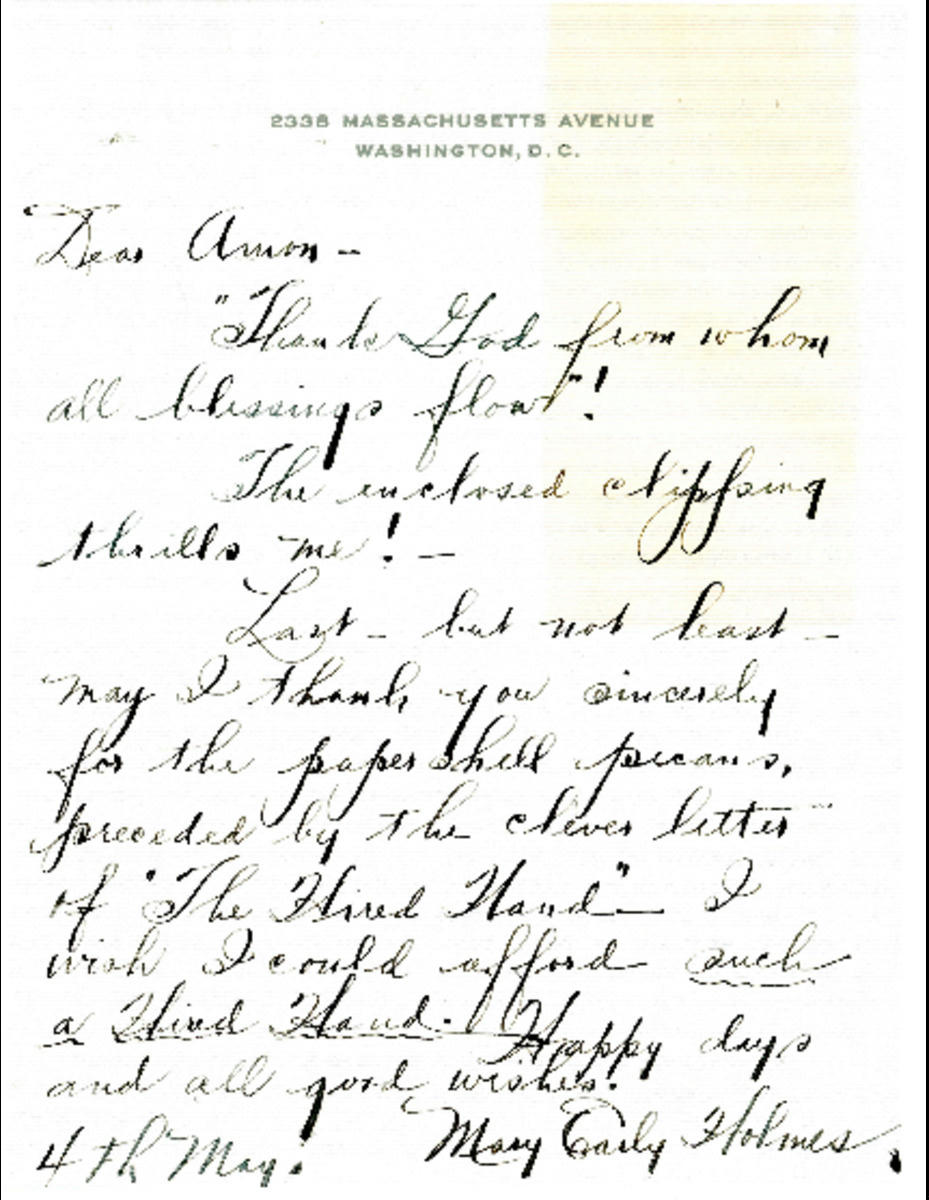 2338 MASSACHUSETTS AVENUE
WASHINGTON, D. C.
Dear Amon –
"Thank God from whom
all blessings flow"!
The enclosed clipping
thrills me! –
Last – but not least –
may I thank you sincerely
for the paper shell pecans,
preceded by the clever letter
of "The Hired Hand" – I
wish I could afford such
a Hired Hand. Happy days
and all good wishes.
Mary Early Holmes.
4th May.